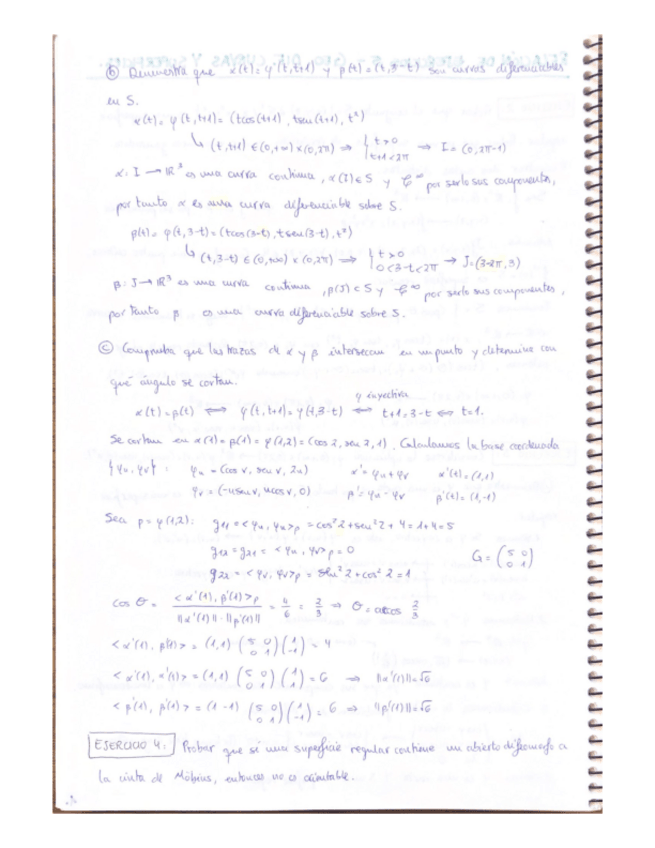 ⓑ Demuestra que α(t) = φ(t,t+1) y β(t) = (t,3-t) son curvas diferenciables
en S.
α(t) = φ(t,t+1) = (tcos(t+1), tsen(t+1), t²)
↳ (t,t+1) ∈ (0,+∞)×(0,2π) ⇒ { t>0 t+1<2π ⇒ I = (0,2π-1)
α: I → ℝ³ es una curva continua, α(I) ⊂ S y C^∞ por serlo sus componentes,
por tanto α es una curva diferenciable sobre S.
β(t) = φ(t,3-t) = (tcos(3-t), tsen(3-t), t²)
↳ (t,3-t) ∈ (0,+∞) × (0,2π) ⇒ { t>0 0<3-t<2π → J = (3-2π,3)
β: J → ℝ³ es una curva continua, β(J) ⊂ S y C^∞ por serlo sus componentes,
por tanto β es una curva diferenciable sobre S.
ⓒ Comprueba que las trazas de α y β intersecan en un punto y determine con
qué ángulo se cortan.
φ inyectiva
α(t) = β(t) ⟺ φ(t,t+1) = φ(t,3-t) ⟺ t+1=3-t ⟺ t=1.
Se cortan en α(1) = β(1) = φ(1,2) = (cos 2, sen 2, 1). Calculamos la base coordenada
{φu, φv} : φu = (cos v, sen v, 2u) α' = φu + φv α'(t) = (1,1)
φv = (-usen v, ucos v, 0) β' = φu - φv β'(t) = (1,-1)
Sea p = φ(1,2): g₁₁ = <φu, φu>p = cos² 2 + sen² 2 + 4 = 1+4 = 5
g₁₂ = g₂₁ = <φu, φv>p = 0 G = (5 0 0 1)
g₂₂ = <φv, φv>p = sen² 2 + cos² 2 = 1
cos θ = <α'(1), β'(1)>p / ||α'(1)||·||β'(1)|| = 4/6 = 2/3 ⇒ θ = arcos 2/3
<α'(1), β'(1)> = (1,1) (5 0 0 1) (1 -1) = 4
<α'(1), α'(1)> = (1,1) (5 0 0 1) (1 1) = 6 ⇒ ||α'(1)|| = √6
<β'(1), β'(1)> = (1 -1) (5 0 0 1) (1 -1) = 6 ⇒ ||β'(1)|| = √6
EJERCICIO 4: Probar que si una superficie regular contiene un abierto difeomorfo a
la cinta de Möbius, entonces no es orientable.